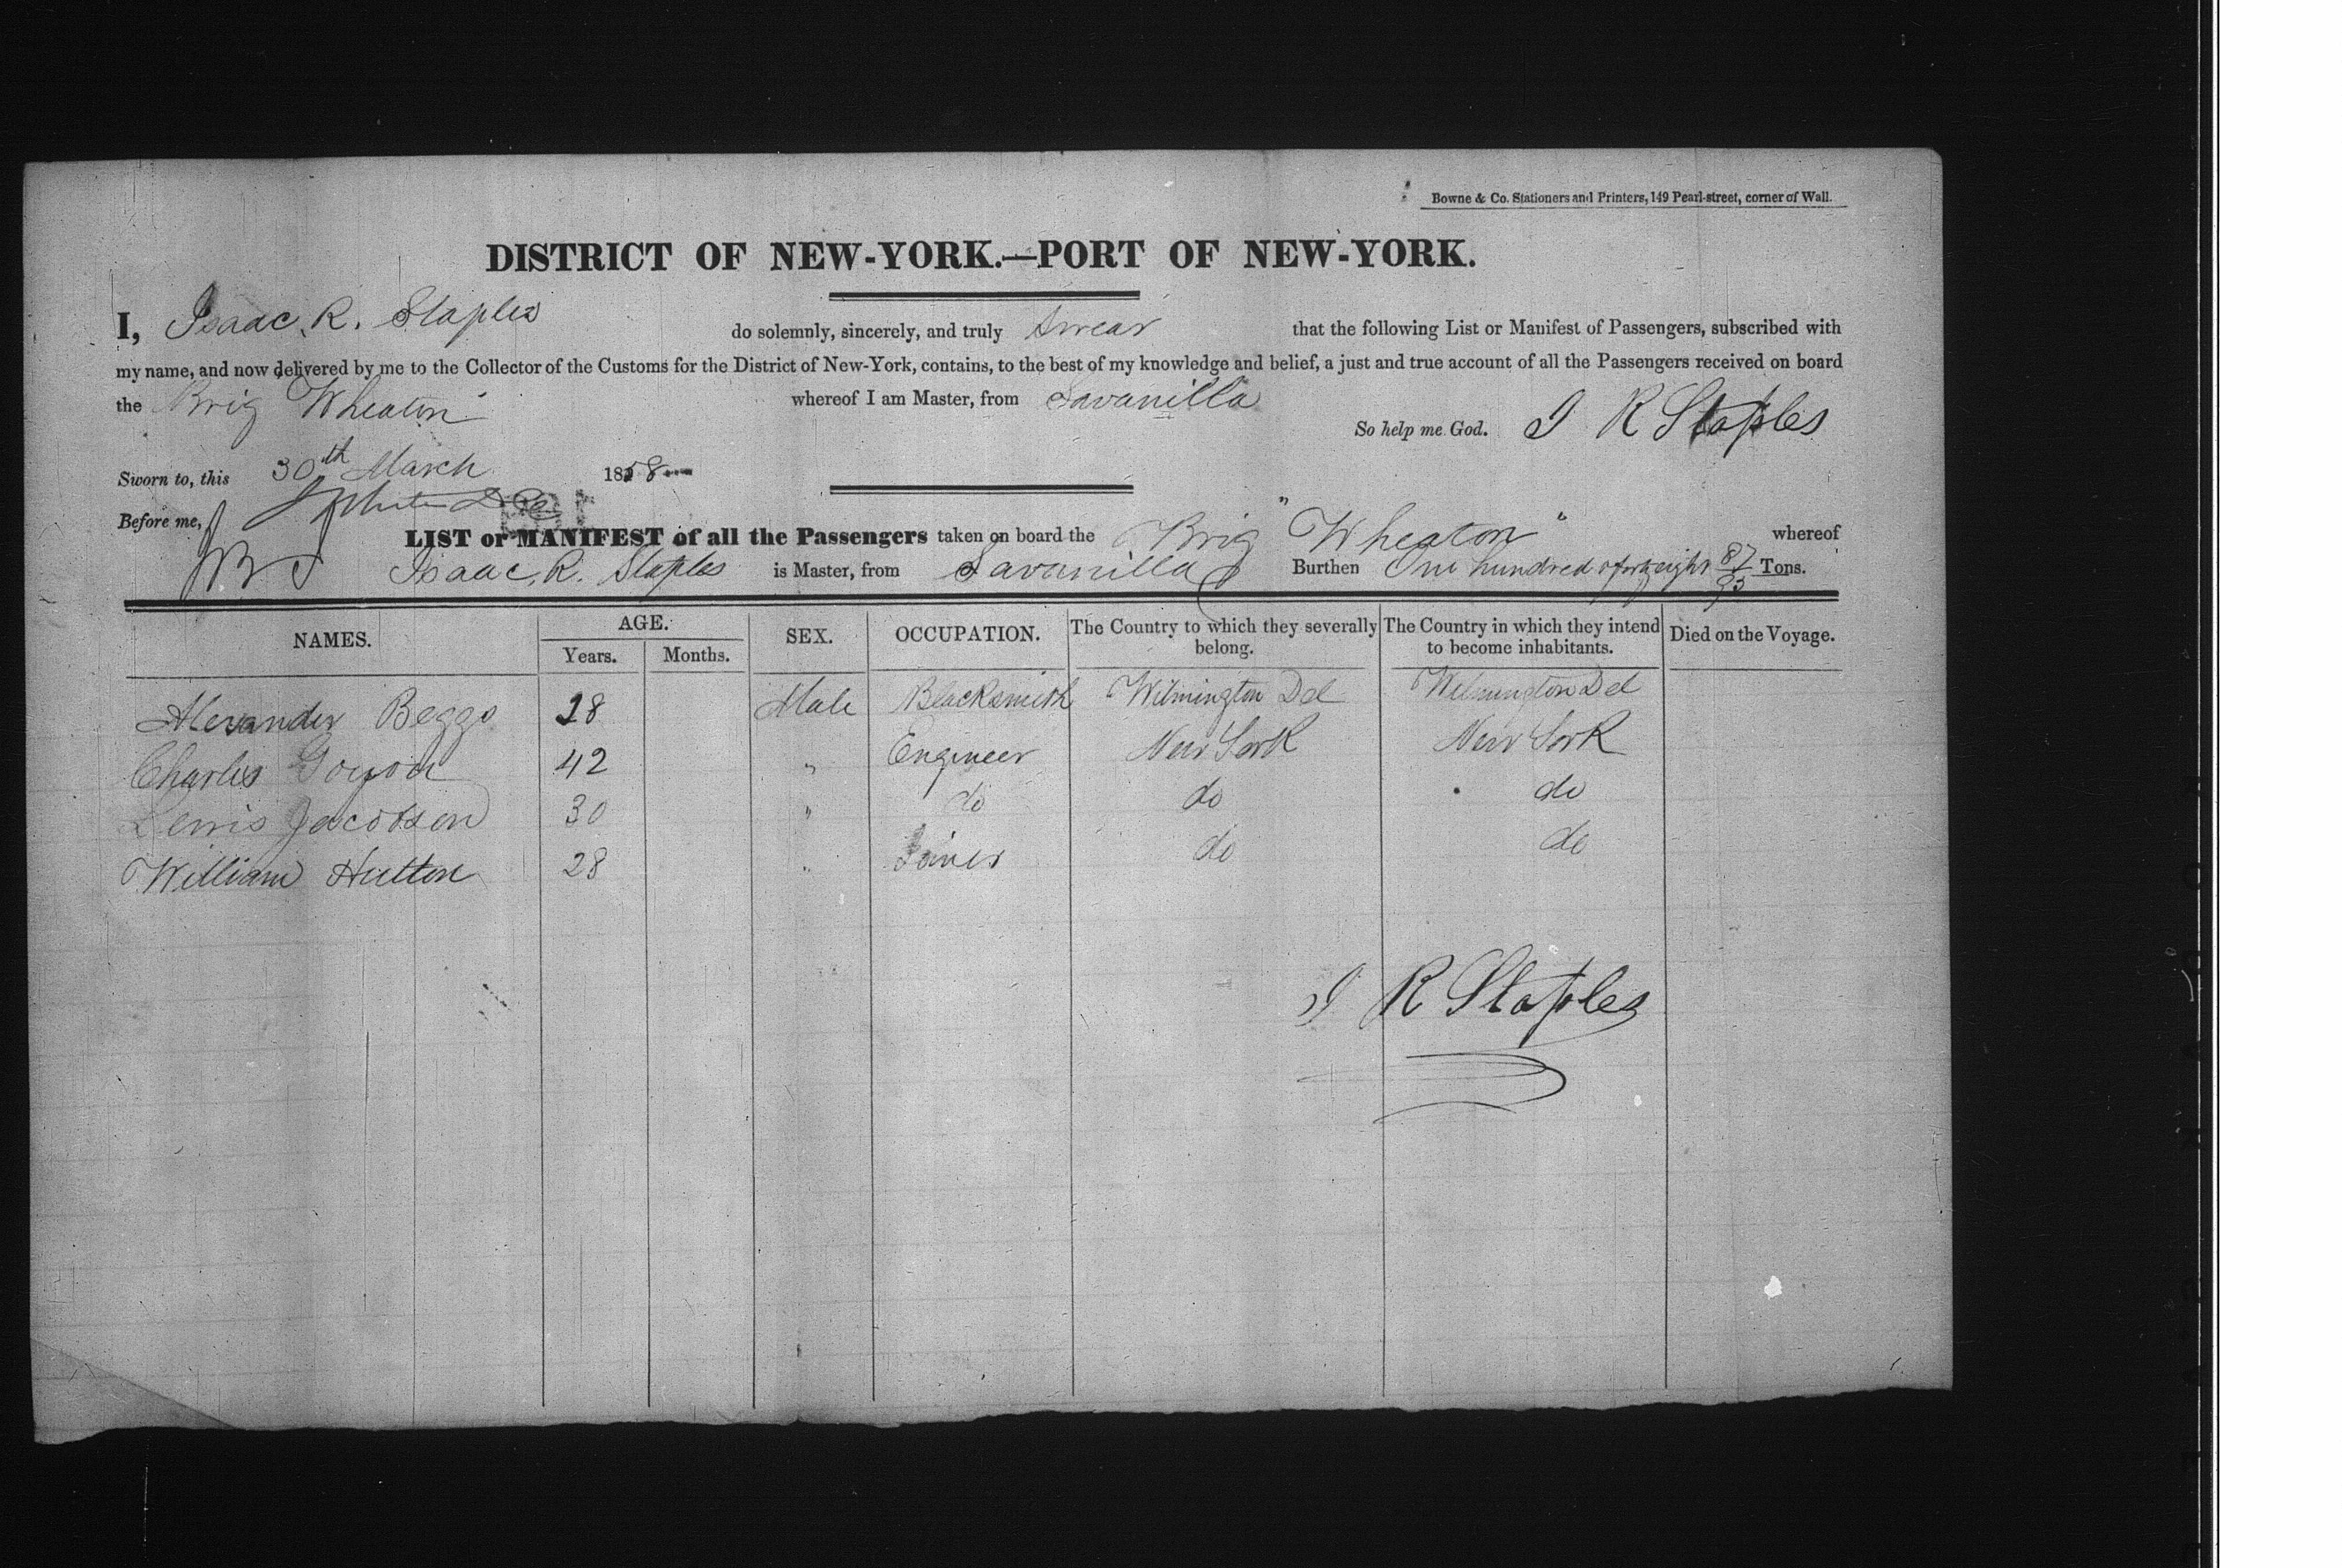 Bowne & Co. Stationers and Printers, 149 Pearl-street, corner of Wall.
DISTRICT OF NEW-YORK.—PORT OF NEW-YORK.
I, Isaac. R. Staples do solemnly, sincerely, and truly swear that the following List or Manifest of Passengers, subscribed with
my name, and now delivered by me to the Collector of the Customs for the District of New-York, contains, to the best of my knowledge and belief, a just and true account of all the Passengers received on board
the Brig Wheaton whereof I am Master, from Savanilla
So help me God. I R Staples
Sworn to, this 30th March 1858
Before me,
LIST or MANIFEST of all the Passengers taken on board the Brig "Wheaton" whereof
Isaac. R. Staples is Master, from Savanilla Burthen One hundred & forty eight 87/95 Tons.
NAMES. AGE. SEX. OCCUPATION. The Country to which they severally belong. The Country in which they intend to become inhabitants. Died on the Voyage.
Years. Months.
Alexander Beggs 28 Male Blacksmith Wilmington Del Wilmington Del
Charles 42 " Engineer New York New York
Lewis Jacobsen 30 " do do do
William Hutton 28 " Joiner do do
I R Staples